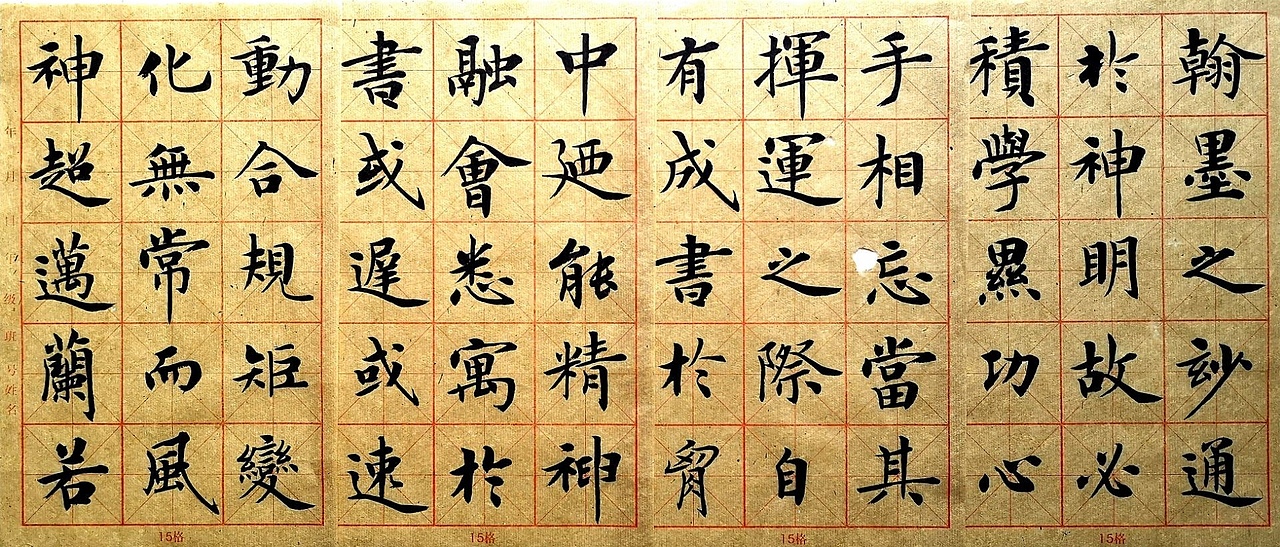 翰墨之玅通
於神明故必
積學累功心
手相忘當其
揮運之際自
有成書於胷
中廼能精神
融會悉寓於
書或遲或速
動合規矩變
化無常而風
神超邁蘭若
15格
15格
15格
15格